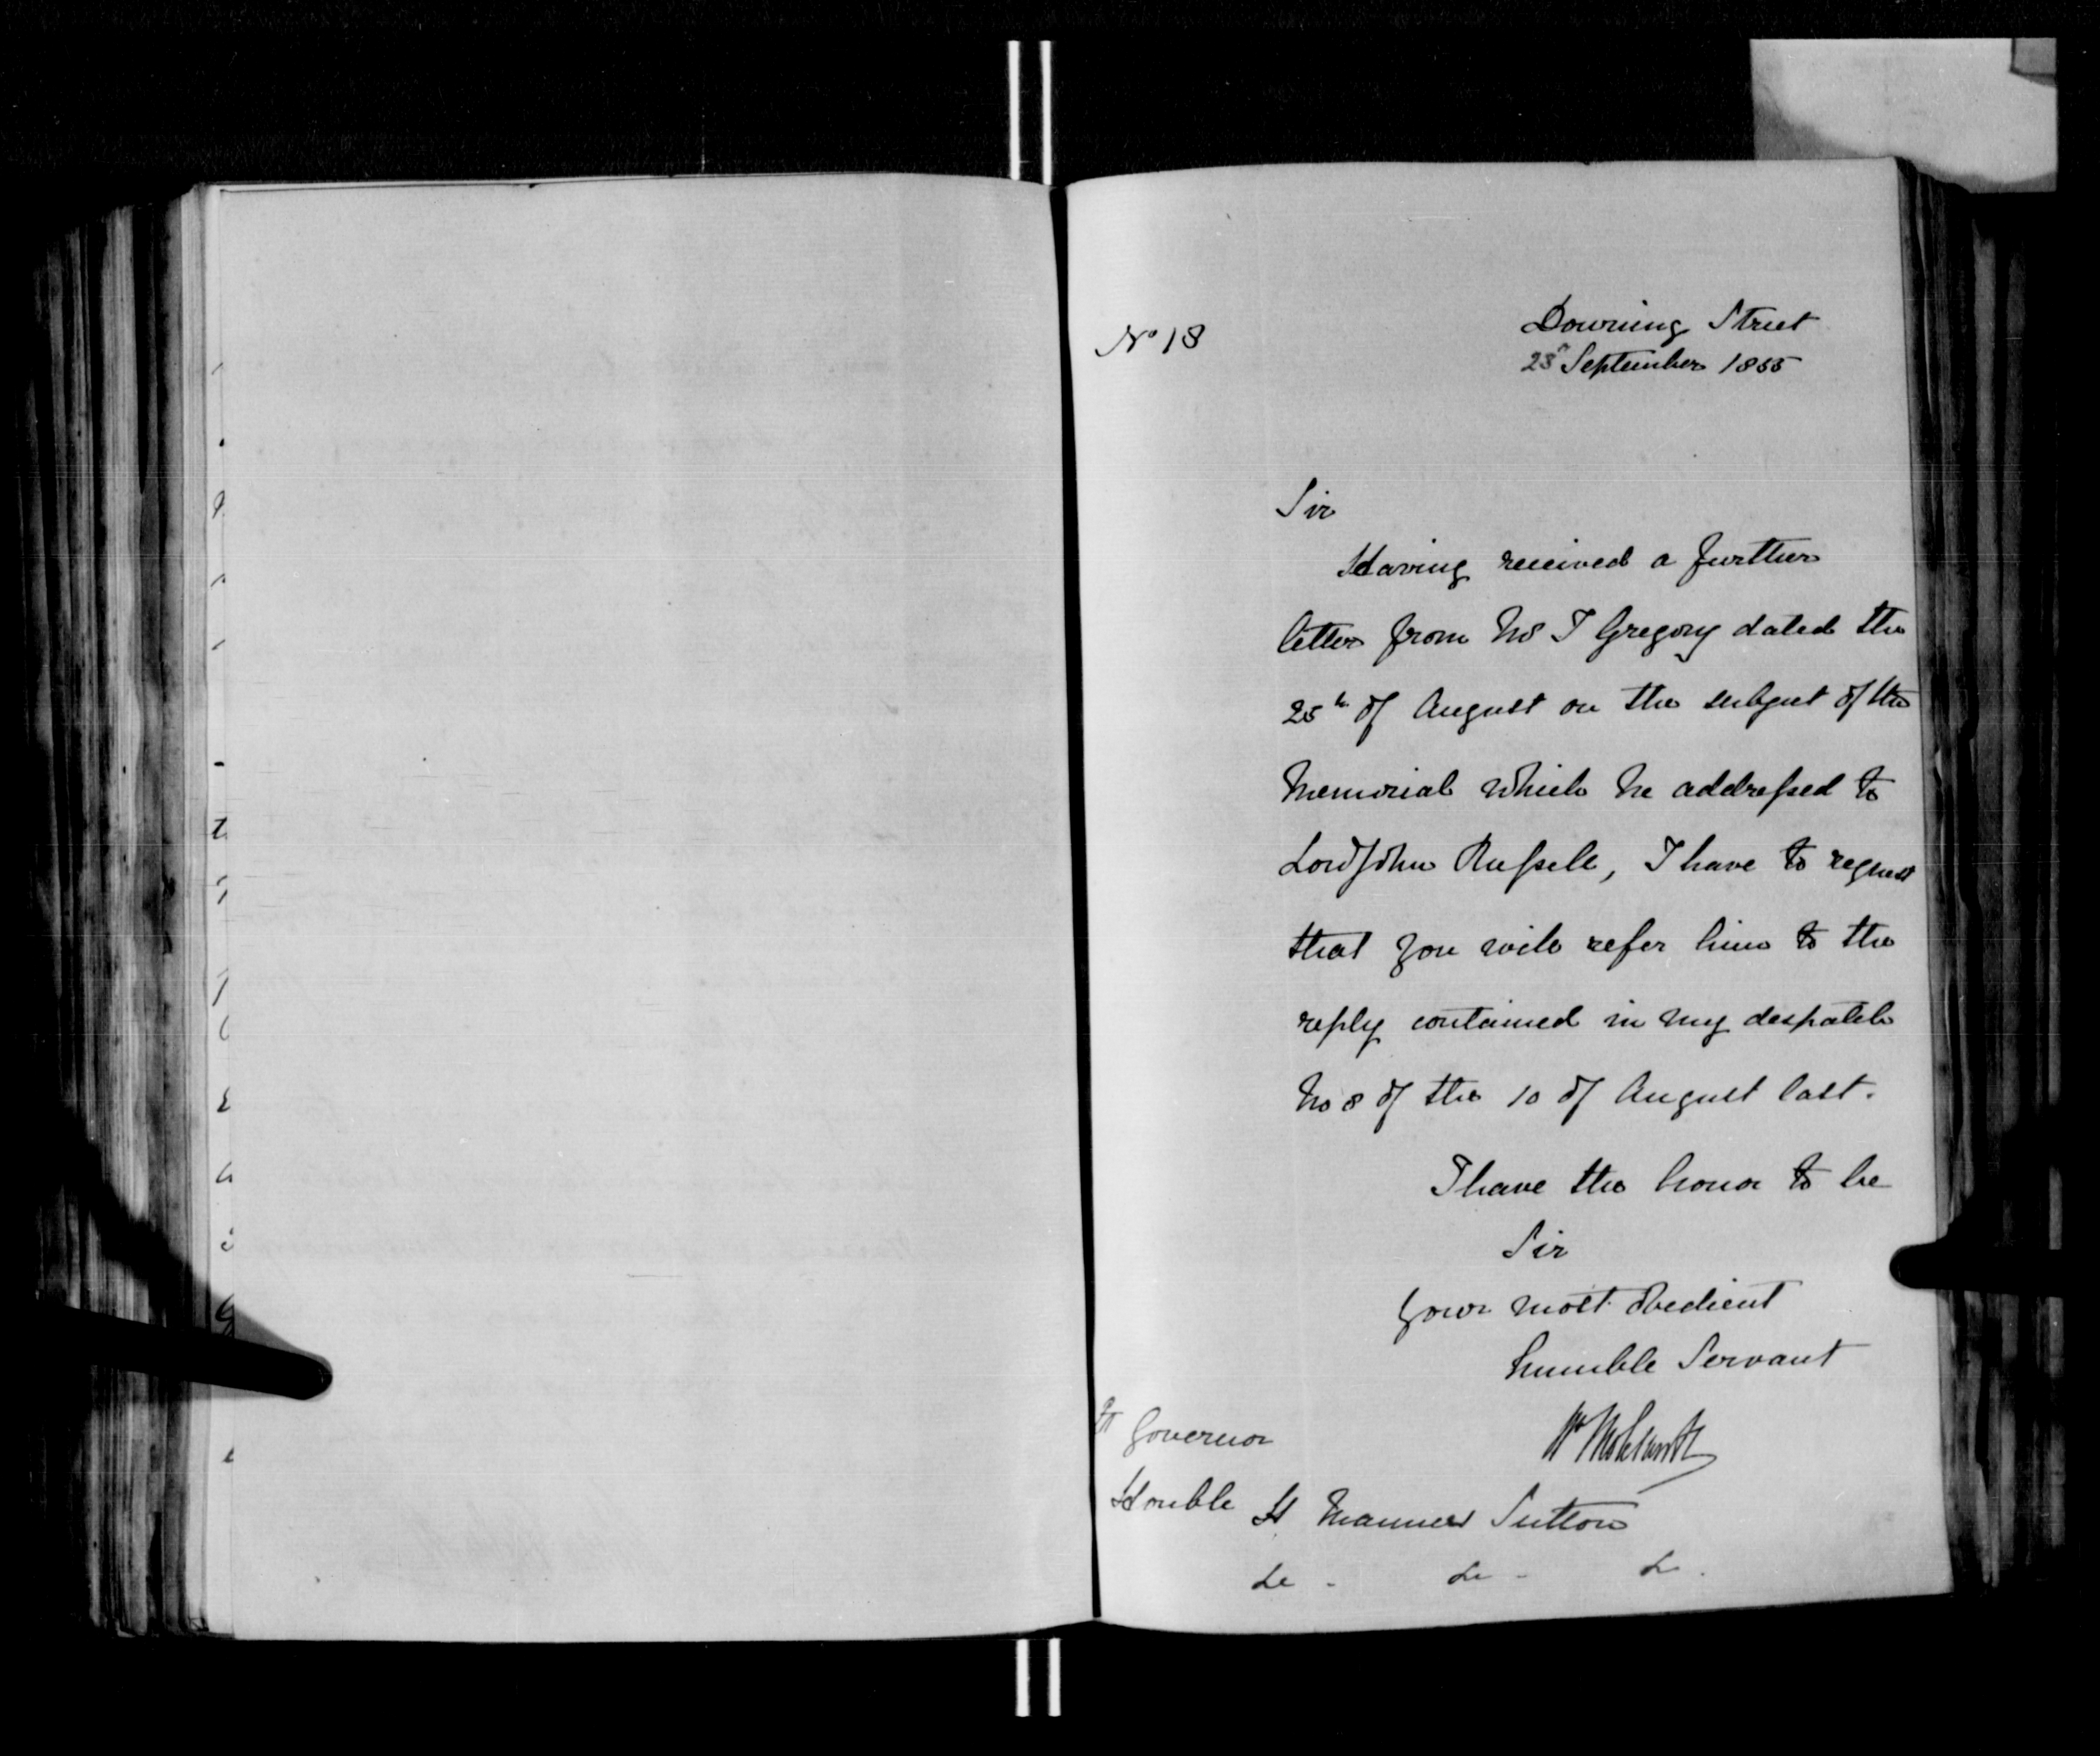 No 18
Downing Street
28 September 1855
Sir
Having received a further
letter from Mr T Gregory dated the
25th of August on the subject of the
Memorial which he addressed to
Lord John Russell, I have to request
that you will refer him to the
reply contained in my despatch
No 8 of the 10 of August last.
I have the honor to be
Sir
Your most obedient
humble Servant
W Molesworth
Lt Governor
Honble H Manners Sutton
&c - &c - &c.